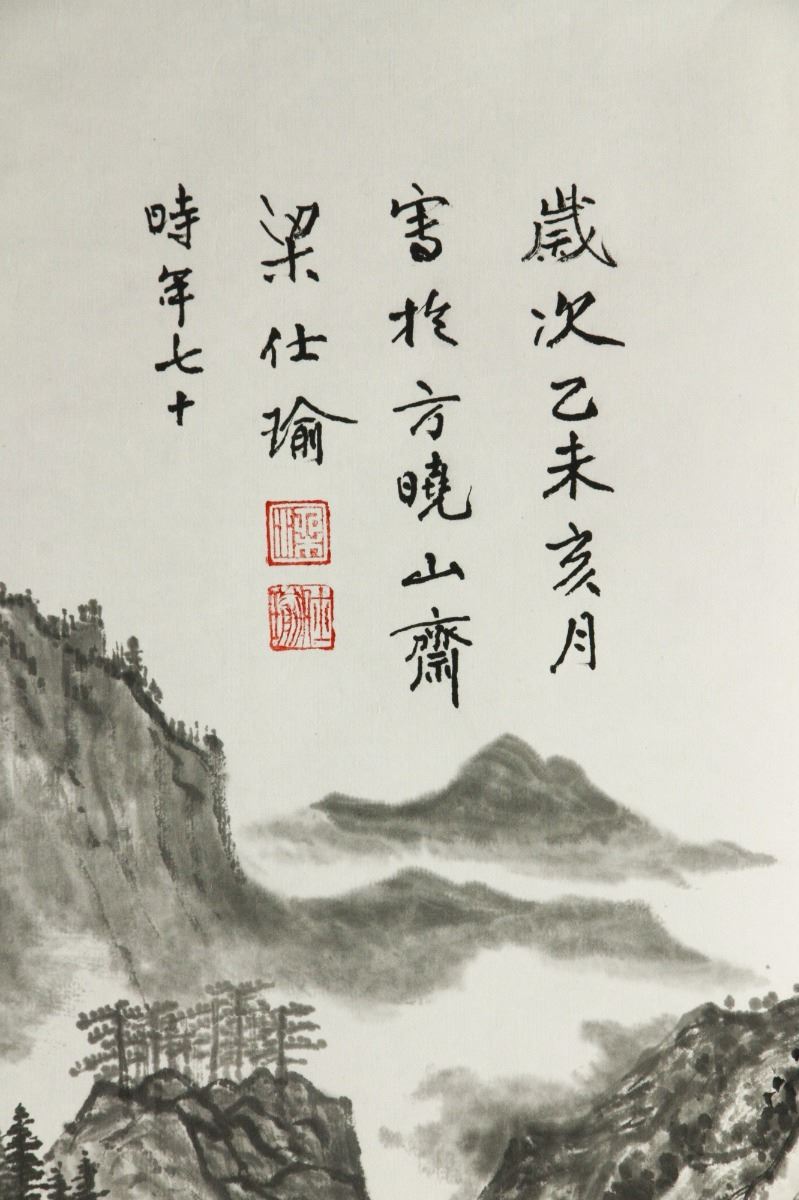 歲次乙未亥月
寫於方曉山齋
梁仕瑜
時年七十